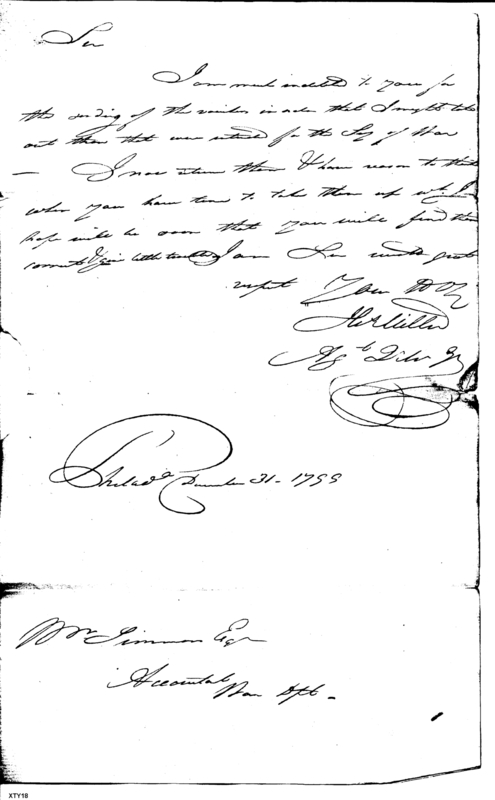 Sir
I am much indebted to you for
the sending of the vouchers in order that I might take
out those that were intended for the Secy of War
— I now return them & have reason to think
when you have time to take them up which I
hope will be soon that you will find them
correct & give little trouble I am Sir with great
respect Your
Jno Miller
Agt
Philada December 31 - 1799
Wm Simmons Esqr
Accountant
War Dept -
XTY18